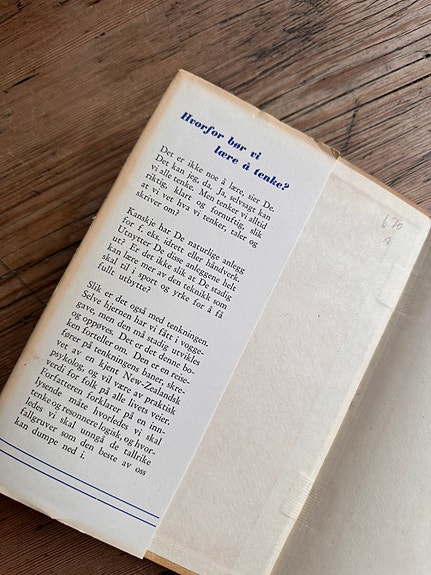 Hvorfor bør vi
lære å tenke?
Det er ikke noe å lære, sier De.
Det kan jeg, da. Ja, selvsagt kan
vi alle tenke. Men tenker vi alltid
riktig, klart og fornuftig, slik
at vi vet hva vi tenker, taler og
skriver om?
Kanskje har De naturlige anlegg
for f. eks. idrett eller håndverk.
Utnytter De disse anleggene helt
ut? Er det ikke slik at De stadig
kan lære mer av den teknikk som
skal til i sport og yrke for å få
fullt utbytte?
Slik er det også med tenkningen.
Selve hjernen har vi fått i vogge-
gave, men den må stadig utvikles
og oppøves. Det er det denne bo-
ken forteller om. Den er en reise-
fører på tenkningens baner, skre-
vet av en kjent New-Zealandsk
psykolog, og vil være av praktisk
verdi for folk på alle livets veier.
Forfatteren forklarer på en inn-
lysende måte hvorledes vi skal
tenke og resonnere logisk, og hvor-
ledes vi skal unngå de tallrike
fallgruver som den beste av oss
kan dumpe ned i.